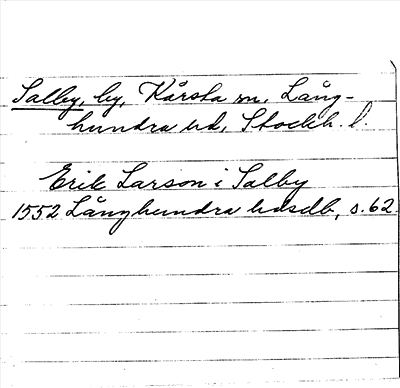 Salby, by, Kårsta sn. Lång-
hundra hd, Stockh. l.
Erik Larson i Salby
1552 Långhundra hdsdb, s. 62.